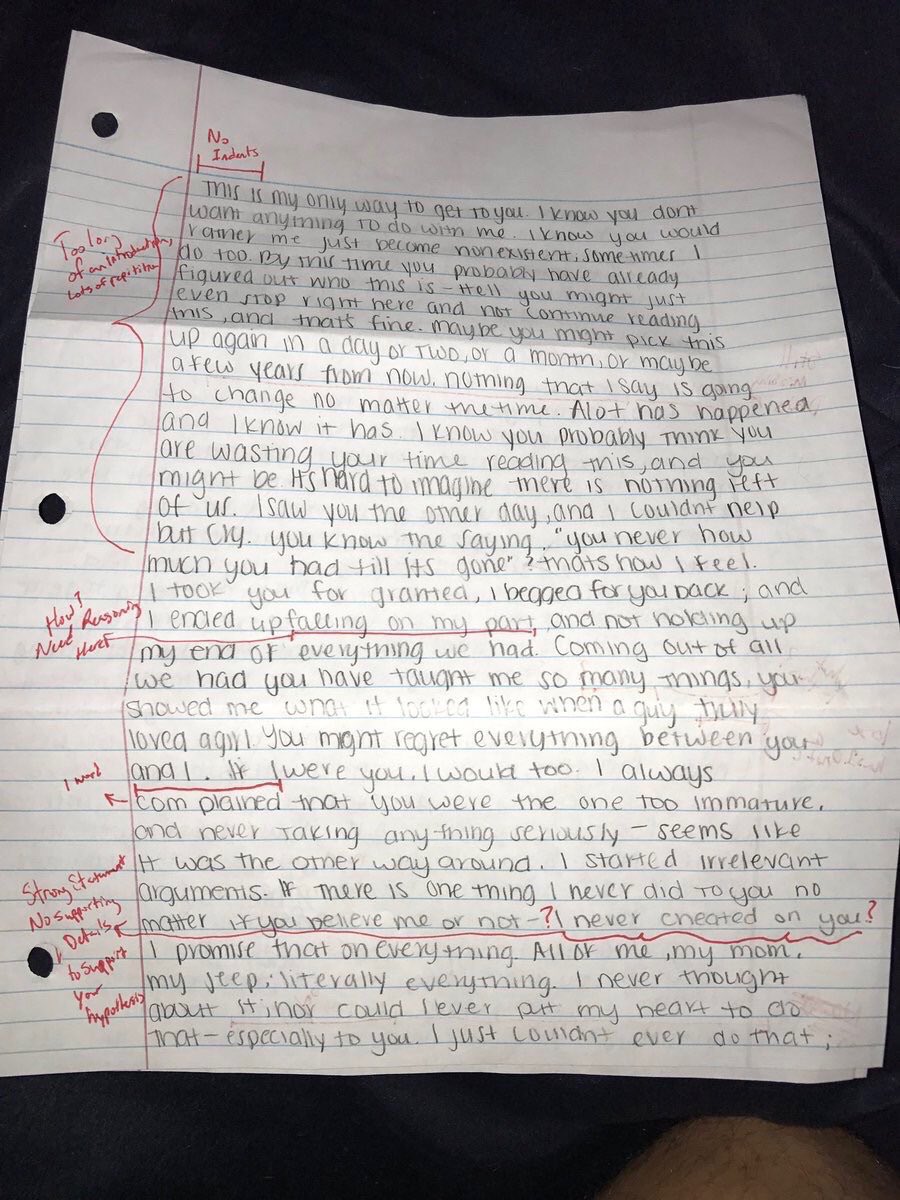 No
Indents
This is my only way to get to you. I know you dont
want anything to do with me. I know you would
rather me just become nonexistent, sometimes I
do too. By this time you probably have already
figured out who this is - Hell you might just
even stop right here and not continue reading
this, and that's fine. maybe you might pick this
up again in a day or two, or a month, or maybe
a few years from now. nothing that I say is going
to change no matter the time. Alot has happened,
and I know it has. I know you probably think you
are wasting your time reading this, and you
might be. It's hard to imagine there is nothing left
of us. I saw you the other day, and I couldnt help
but cry. you know the saying, "you never how
much you had till its gone"? thats how I feel.
I took you for granted, I begged for you back; and
I ended up falling on my part, and not holding up
my end of everything we had. Coming out of all
we had you have taught me so many things, you
showed me what it looked like when a guy truly
loved a girl. You might regret everything between you
and I. If I were you, I would too. I always
complained that you were the one too immature,
and never taking anything seriously - seems like
it was the other way around. I started irrelevant
arguments. If there is one thing I never did to you no
matter if you believe me or not -? I never cheated on you?
I promise that on everything. All of me, my mom,
my jeep; literally everything. I never thought
about it; nor could I ever put my heart to do
that - especially to you. I just couldnt ever do that;
Too long
of an introduction,
Lots of repitition
How?
Need Reasoning
Here
1 word
Strong Statement
No supporting
Details
to support
your
hypothesis